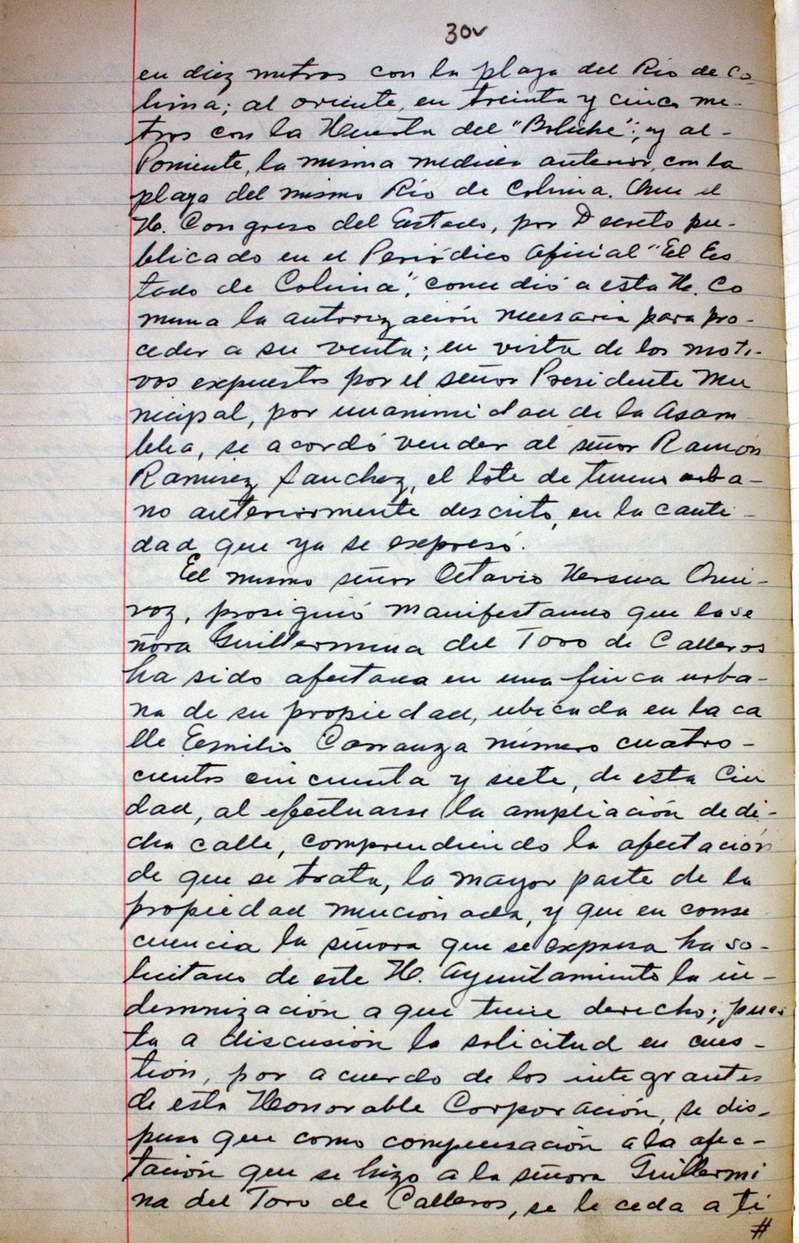 30v
en diez metros con la playa del Río de Co-
lima; al oriente, en treinta y cinco me-
tros con la Huerta del "Boliche"; y al-
Poniente, la misma medida anterior, con la
playa del mismo Río de Colima. Que el
H. Congreso del Estado, por Decreto pu-
blicado en el Periódico Oficial "El Es
tado de Colima", concedió a esta H. Co
muna la autorización necesaria para pro-
ceder a su venta; en vista de los moti-
vos expuestos por el señor Presidente Mu
nicipal, por unanimidad de la Asam-
blea, se acordó vender al señor Ramón
Ramirez Sanchez, el lote de terreno urba-
no anteriormente descrito, en la canti-
dad que ya se expresó.
El mismo señor Octavio Herrera Qui-
roz, prosiguió manifestando que la se
ñora Guillermina del Toro de Calleros
ha sido afectada en una finca urba-
na de su propiedad, ubicada en la ca
lle Emilio Carranza número cuatro-
cientos cincuenta y siete, de esta Ciu
dad, al efectuarse la ampliación de di-
cha calle, comprendiendo la afectación
de que se trata, la mayor parte de la
propiedad mencionada, y que en conse
cuencia la señora que se expresa ha so-
licitado de este H. Ayuntamiento la in-
demnización a que tiene derecho; pues
ta a discusión la solicitud en cues-
tión, por acuerdo de los integrantes
de esta Honorable Corporación, se dis-
puso que como compensación a la afec-
tación que se hizo a la señora Guillermi
na del Toro de Calleros, se le ceda a tí
#